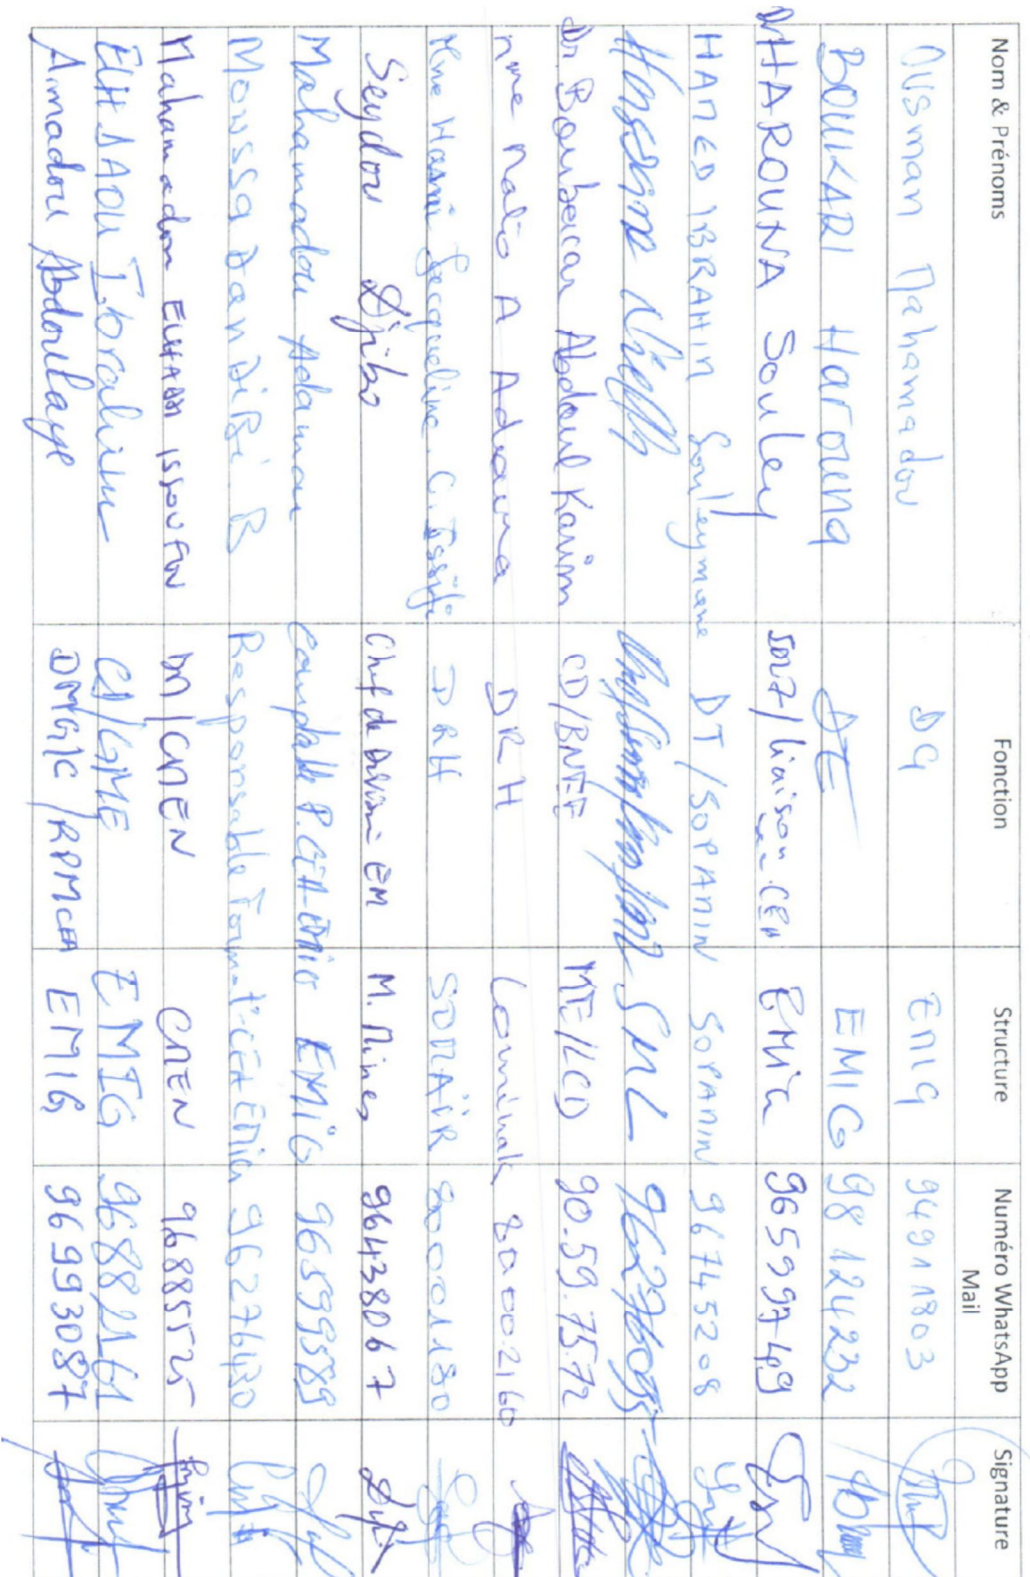 Nom & Prénoms Fonction Structure Numéro WhatsApp Mail Signature
Ousman Mahamadou DG EMIG 94911803
BOUKARI Harouna DE EMIG 98124232
Dr HAROUNA Souley liaison CEA EMIG 96599749
HAMED IBRAHIM Souleymane DT/SOPAMIN SOPAMIN 96745208
SML
Dr. Boubacar Abdoul Karim CD/BNEE ME/LCD 90.59.75.72
Mme A Adama DRH Cominak 800002160
Mme Jacqueline C. DRH SOMAÏR 80001180
Seydou Djibo Chef de Division EM M. Mines 96438067
Mahamadou Adamou Comptable P.CEA-EMIG EMIG 96599589
Moussa Dan B Responsable Format° CEA EMIG 96276430
Mahamadou ELHADJI ISSOUFOU CNEN 96885525
ELH DAOU Ibrahim CD/GME EMIG 96882161
Amadou Abdoulaye DMG/C/RPMCEA EMIG 96993087